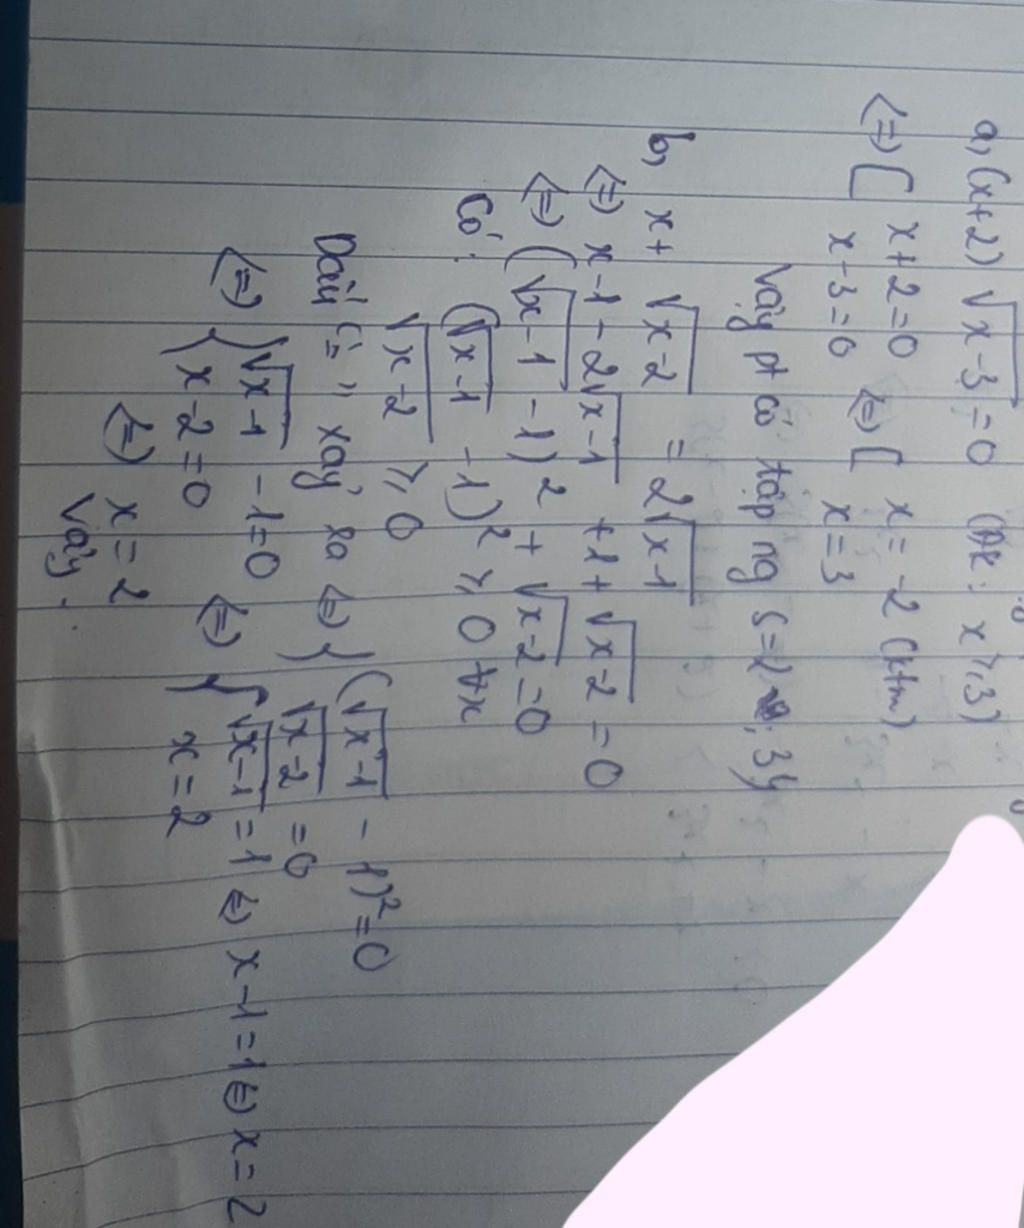 a, (x+2) √x-3 = 0 (Đk: x ≥ 3)
<=> [ x+2=0 <=> [ x = -2 (ktm)
x-3=0 x=3
Vậy pt có tập ng S={ ; 3}
b, x + √x-2 = 2√x-1
<=> x-1-2√x-1 +1+ √x-2 = 0
<=> (√x-1 -1)² + √x-2 = 0
Có: (√x-1 -1)² ≥ 0 ∀x
√x-2 ≥ 0
Dấu "=" xảy ra <=> { (√x-1 - 1)² = 0
√x-2 = 0
<=> { √x-1 - 1 = 0 <=> { √x-1 = 1 <=> x-1 = 1 <=> x = 2
x-2 = 0 x = 2
<=> x = 2
Vậy.